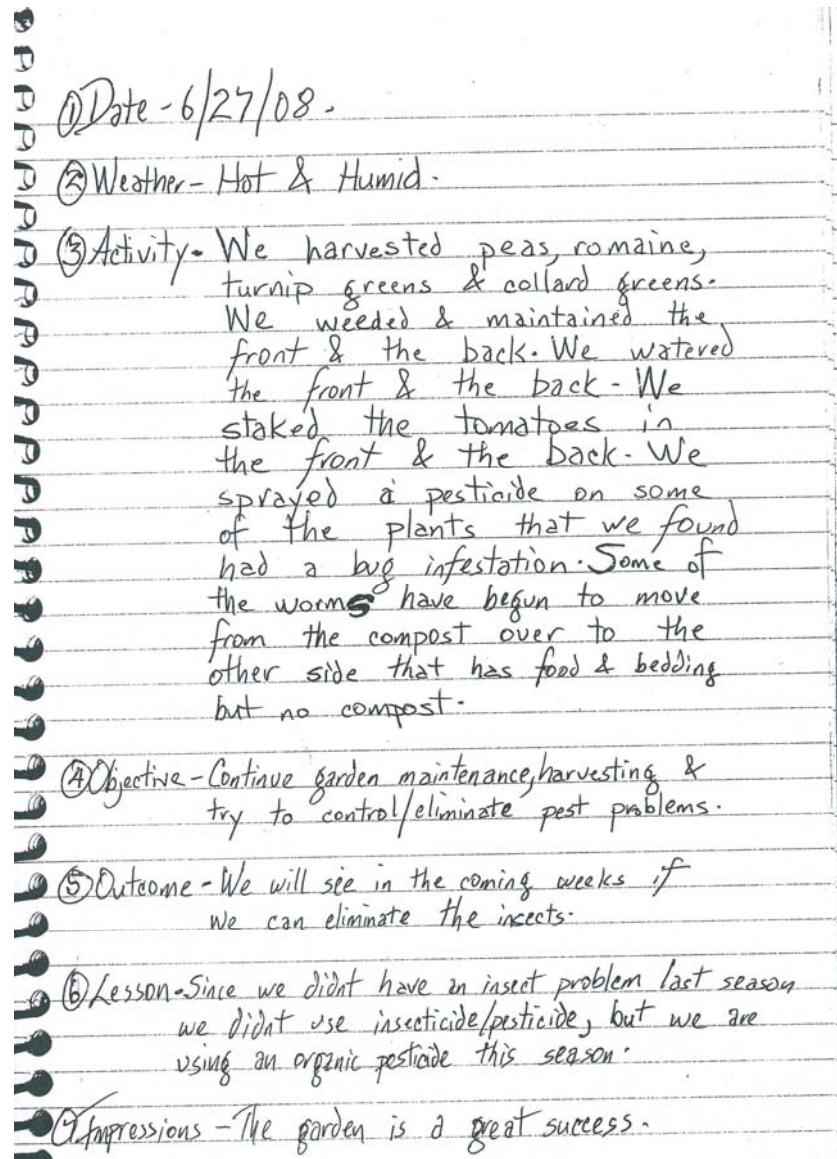 ① Date - 6/27/08.
② Weather - Hot & Humid.
③ Activity - We harvested peas, romaine,
turnip greens & collard greens.
We weeded & maintained the
front & the back. We watered
the front & the back - We
staked the tomatoes in
the front & the back. We
sprayed a pesticide on some
of the plants that we found
had a bug infestation. Some of
the worms have begun to move
from the compost over to the
other side that has food & bedding
but no compost.
④ Objective - Continue garden maintenance, harvesting &
try to control/eliminate pest problems.
⑤ Outcome - We will see in the coming weeks if
we can eliminate the insects.
⑥ Lesson - Since we didnt have an insect problem last season
we didnt use insecticide/pesticide, but we are
using an organic pesticide this season.
⑦ Impressions - The garden is a great success.